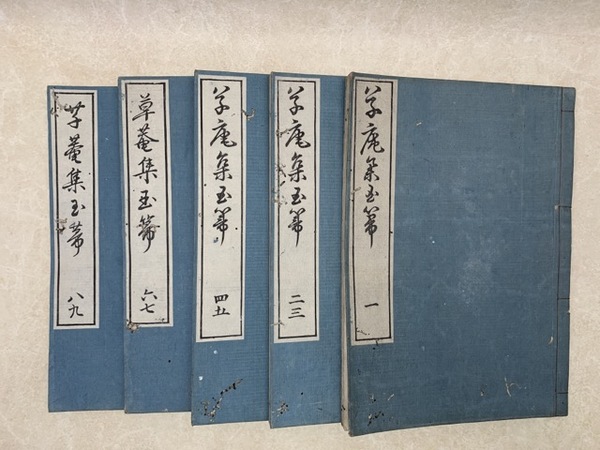 草庵集玉箒 一
草庵集玉箒 二三
草庵集玉箒 四五
草菴集玉箒 六七
草菴集玉箒 八九